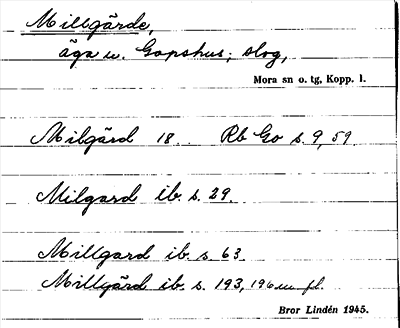 Millgärde,
äga u. Gopshus; slog,
Mora sn o. tg, Kopp. l.
Milgärd 18 Rb Go s. 9, 59.
Milgard ib. s. 29.
Millgard ib. s. 63.
Millgärd ib. s. 193, 196 m fl.
Bror Lindén 1945.